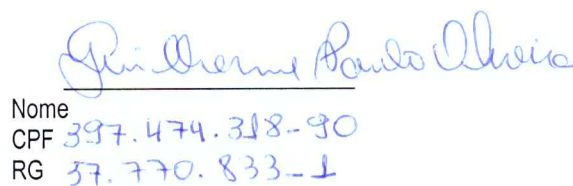 Guilherme Paulo Oliveira
Nome
CPF 397.474.318-90
RG 37.770.833-1